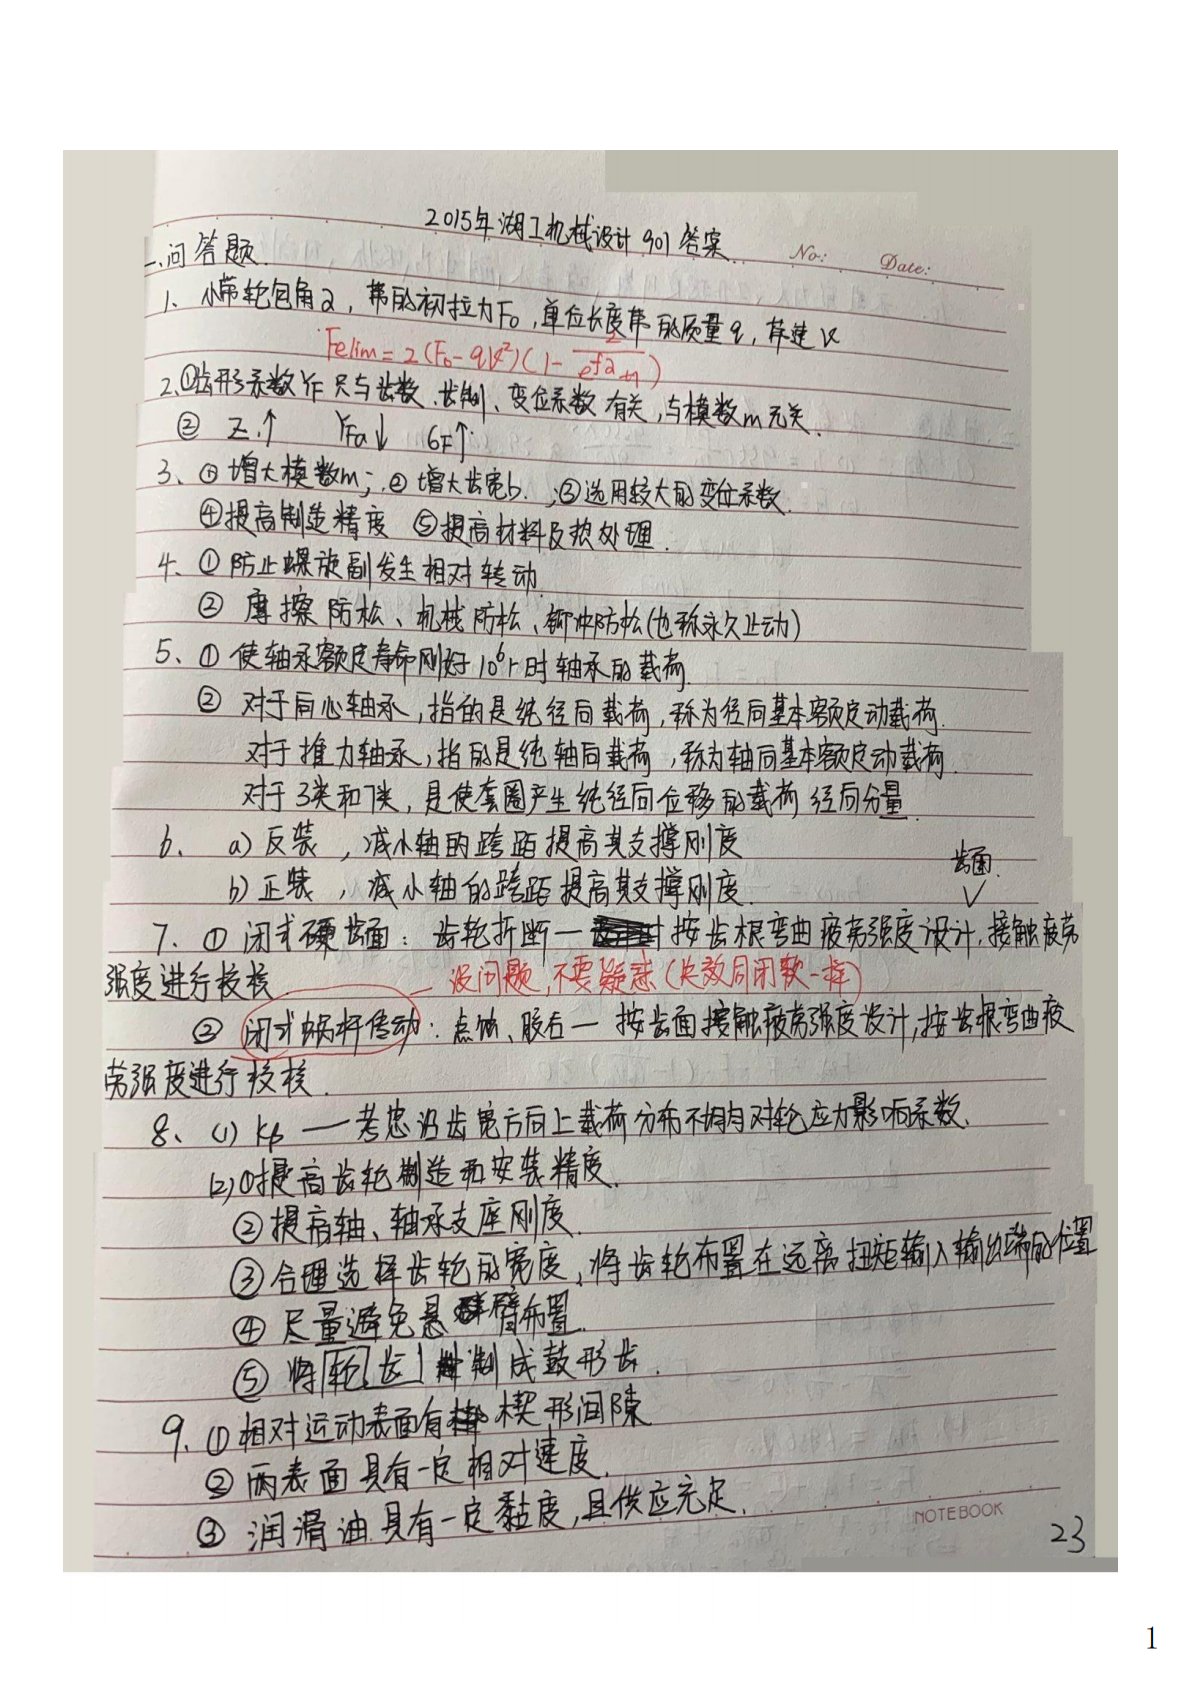 2015年湖工机械设计901答案
No: Date:
一、问答题
1、小带轮包角α，带的初拉力F₀，单位长度带的质量q，带速V
Felim=2(F₀-qV²)(1-2/(e^fα+1))
2、①齿形系数YF只与齿数、齿制、变位系数有关，与模数m无关.
② Z↑ YFa↓ σF↑
3、①增大模数m；②增大齿宽b.；③选用较大的变位系数.
④提高制造精度 ⑤提高材料及热处理.
4、①防止螺旋副发生相对转动.
② 摩擦防松、机械防松、铆冲防松(也称永久止动)
5、①使轴承额定寿命刚好10⁶r时轴承的载荷.
② 对于向心轴承，指的是纯径向载荷，称为径向基本额定动载荷.
对于推力轴承，指的是纯轴向载荷，称为轴向基本额定动载荷.
对于3类和7类，是使套圈产生纯径向位移的载荷径向分量.
6、 a)反装，减小轴的跨距提高其支撑刚度
b)正装，减小轴的跨距提高其支撑刚度.
齿面.
7、①闭式硬齿面：齿轮折断一 按齿根弯曲疲劳强度设计，接触疲劳
强度进行校核
没问题，不要疑惑(失效同闭软一样)
② 闭式蜗杆传动：点蚀、胶合一 按齿面接触疲劳强度设计，按齿根弯曲疲
劳强度进行校核.
8、(1) Kβ —考虑沿齿宽方向上载荷分布不均匀对轮应力影响系数.
(2)①提高齿轮制造和安装精度.
②提高轴、轴承支座刚度.
③合理选择齿轮的宽度，将齿轮布置在远离扭矩输入输出端的位置
④ 尽量避免悬臂布置.
⑤ 将轮齿制成鼓形齿.
9、①相对运动表面有楔形间隙
② 两表面具有一定相对速度.
③ 润滑油具有一定黏度，且供应充足.
NOTEBOOK
23
1